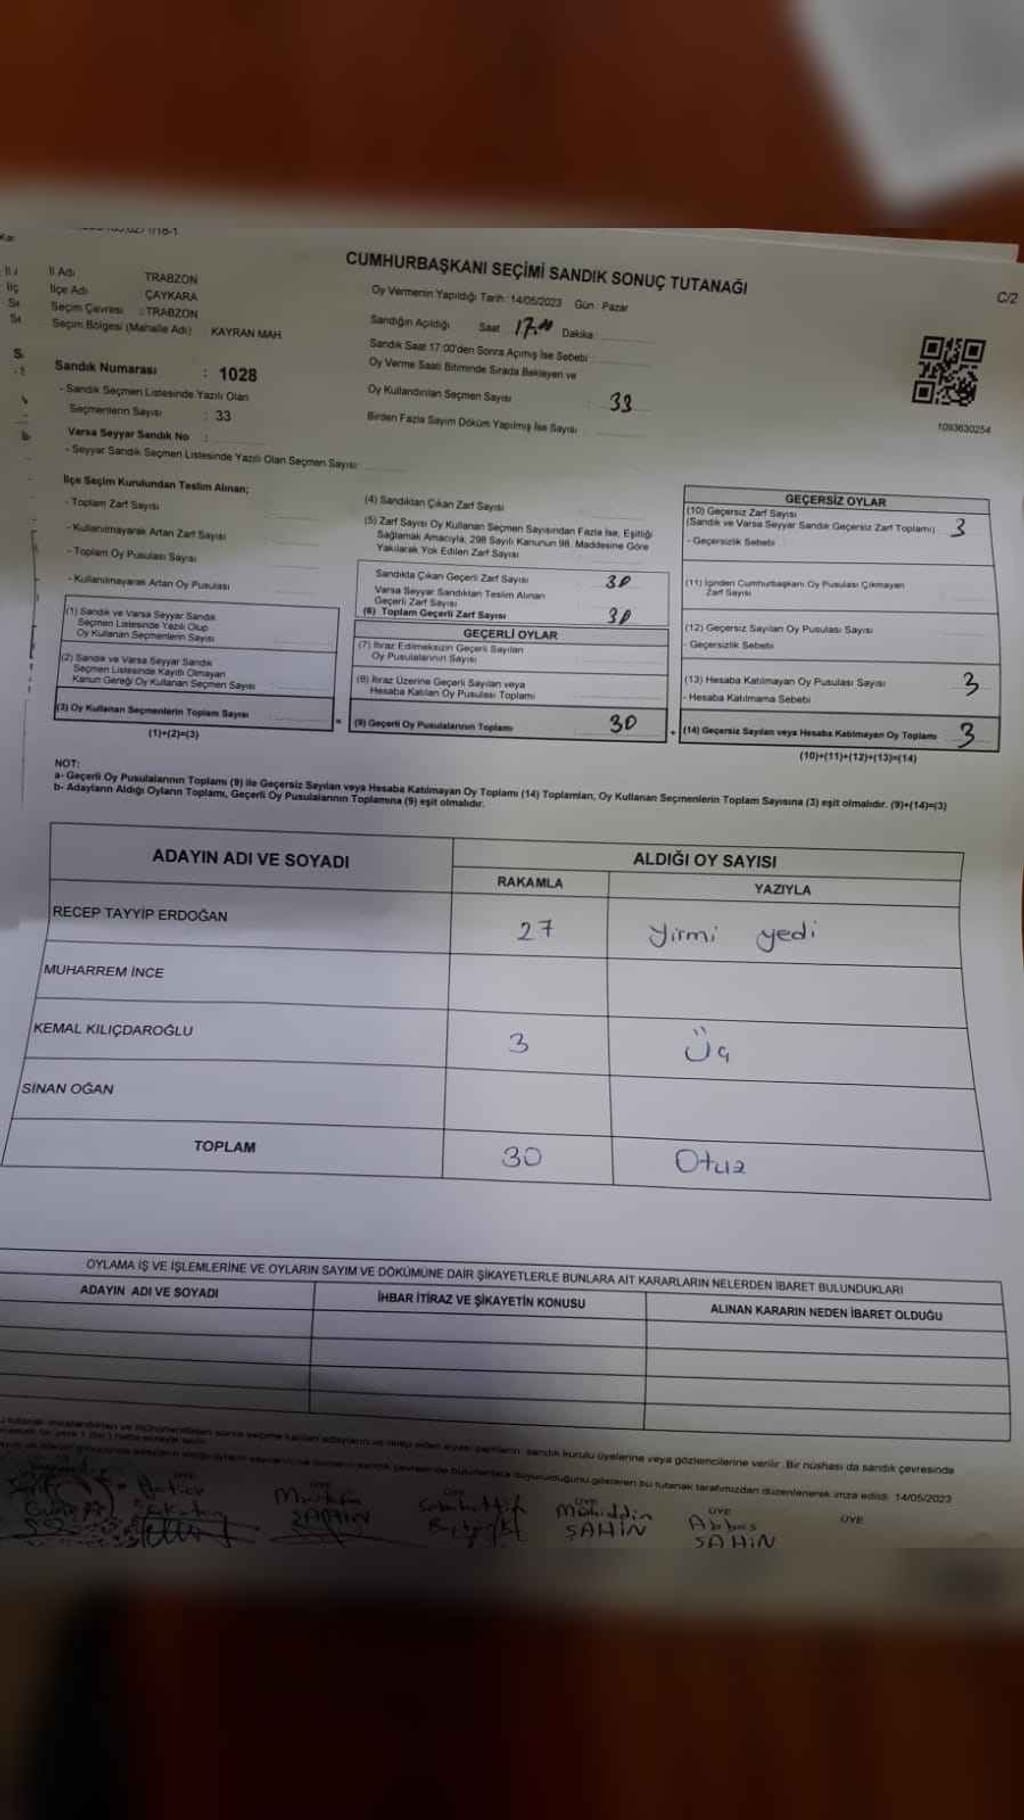 CUMHURBAŞKANI SEÇİMİ SANDIK SONUÇ TUTANAĞI
C/2
İl Adı TRABZON
İlçe Adı ÇAYKARA
Seçim Çevresi : TRABZON
Seçim Bölgesi (Mahalle Adı) KAYRAN MAH
Sandık Numarası : 1028
- Sandık Seçmen Listesinde Yazılı Olan
Seçmenlerin Sayısı : 33
Varsa Seyyar Sandık No :
- Seyyar Sandık Seçmen Listesinde Yazılı Olan Seçmen Sayısı
Oy Vermenin Yapıldığı Tarih: 14/05/2023 Gün: Pazar
Sandığın Açıldığı Saat 17.00 Dakika
Sandık Saat 17:00'den Sonra Açımış İse Sebebi
Oy Verme Saati Bitiminde Sırada Bekleyen ve
Oy Kullandırılan Seçmen Sayısı 33
Birden Fazla Sayım Döküm Yapılmış İse Sayısı
1093630254
İlçe Seçim Kurulundan Teslim Alınan;
- Toplam Zarf Sayısı
- Kullanılmayarak Artan Zarf Sayısı
- Toplam Oy Pusulası Sayısı
- Kullanılmayarak Artan Oy Pusulası
(1) Sandık ve Varsa Seyyar Sandık
Seçmen Listesinde Yazılı Olup
Oy Kullanan Seçmenlerin Sayısı
(2) Sandık ve Varsa Seyyar Sandık
Seçmen Listesinde Kayıtlı Olmayan
Kanun Gereği Oy Kullanan Seçmen Sayısı
(3) Oy Kullanan Seçmenlerin Toplam Sayısı
(1)+(2)=(3)
(4) Sandıktan Çıkan Zarf Sayısı
(5) Zarf Sayısı Oy Kullanan Seçmen Sayısından Fazla İse, Eşitliği
Sağlamak Amacıyla, 298 Sayılı Kanunun 98. Maddesine Göre
Yakılarak Yok Edilen Zarf Sayısı
Sandıkta Çıkan Geçerli Zarf Sayısı 30
Varsa Seyyar Sandıktan Teslim Alınan
Geçerli Zarf Sayısı
(6) Toplam Geçerli Zarf Sayısı 30
GEÇERLİ OYLAR
(7) İtiraz Edilmeksizin Geçerli Sayılan
Oy Pusulalarının Sayısı
(8) İtiraz Üzerine Geçerli Sayılan veya
Hesaba Katılan Oy Pusulası Toplamı
= (9) Geçerli Oy Pusulalarının Toplamı 30
GEÇERSİZ OYLAR
(10) Geçersiz Zarf Sayısı
(Sandık ve Varsa Seyyar Sandık Geçersiz Zarf Toplamı) 3
- Geçersizlik Sebebi
(11) İçinden Cumhurbaşkanı Oy Pusulası Çıkmayan
Zarf Sayısı
(12) Geçersiz Sayılan Oy Pusulası Sayısı
- Geçersizlik Sebebi
(13) Hesaba Katılmayan Oy Pusulası Sayısı 3
- Hesaba Katılmama Sebebi
+ (14) Geçersiz Sayılan veya Hesaba Katılmayan Oy Toplamı 3
(10)+(11)+(12)+(13)=(14)
NOT:
a- Geçerli Oy Pusulalarının Toplamı (9) ile Geçersiz Sayılan veya Hesaba Katılmayan Oy Toplamı (14) Toplamları, Oy Kullanan Seçmenlerin Toplam Sayısına (3) eşit olmalıdır. (9)+(14)=(3)
b- Adayların Aldığı Oyların Toplamı, Geçerli Oy Pusulalarının Toplamına (9) eşit olmalıdır.
ADAYIN ADI VE SOYADI ALDIĞI OY SAYISI
RAKAMLA YAZIYLA
RECEP TAYYİP ERDOĞAN 27 Yirmi yedi
MUHARREM İNCE
KEMAL KILIÇDAROĞLU 3 Üç
SİNAN OĞAN
TOPLAM 30 Otuz
OYLAMA İŞ VE İŞLEMLERİNE VE OYLARIN SAYIM VE DÖKÜMÜNE DAİR ŞİKAYETLERLE BUNLARA AİT KARARLARIN NELERDEN İBARET BULUNDUKLARI
ADAYIN ADI VE SOYADI İHBAR İTİRAZ VE ŞİKAYETİN KONUSU ALINAN KARARIN NEDEN İBARET OLDUĞU
sandık kurulu üyelerine veya gözlemcilerine verilir. Bir nüshası da sandık çevresinde
duyurulduğunu gösteren bu tutanak tarafımızdan düzenlenerek imza edildi. 14/05/2023
ÜYE ÜYE ÜYE
ŞAHİN
Mühiddin
ŞAHİN
Abbas
ŞAHİN